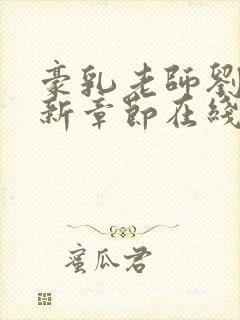 豪乳老師劉
新章節在綫
蜜瓜君